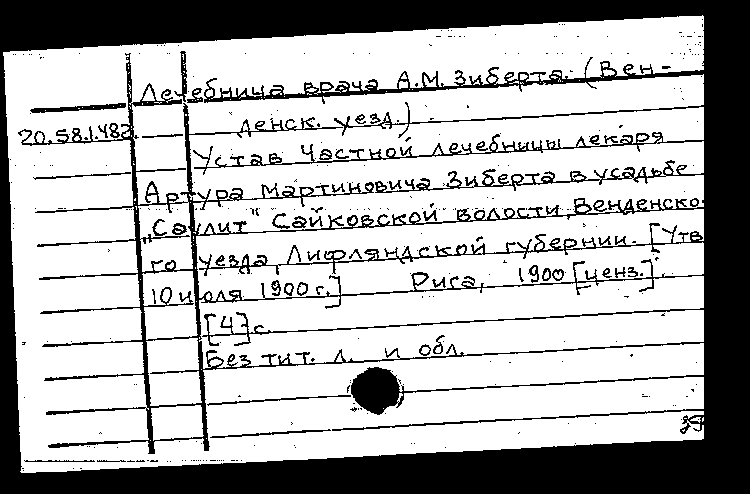 Лечебница врача А.М. Зиберта. (Вен-
20.58.1.482. денск. уезд.)
Устав частной лечебницы лекаря
Артура Мартиновича Зиберта в усадьбе
„Саулит" Сайковской волости, Венденско-
го уезда, Лифляндской губернии. [Утв
10 июля 1900 г.] Рига, 1900 [ценз.].
[4] с.
Без тит. л. и обл.